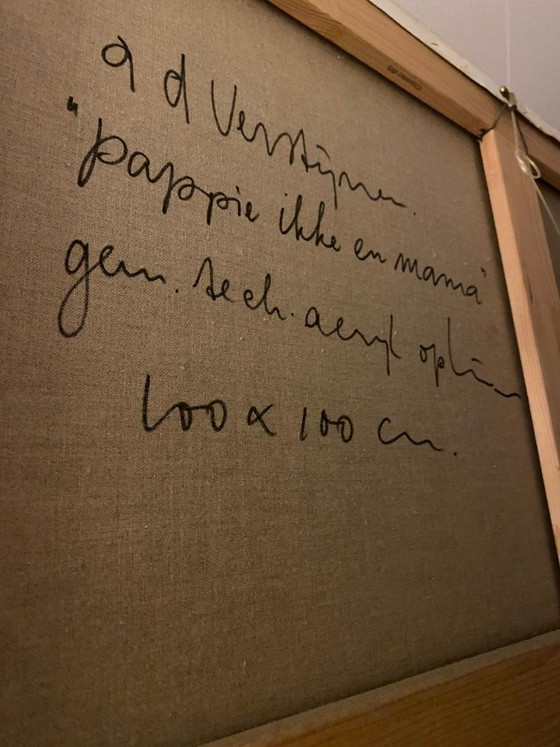 ad Verstijnen.
"pappie ikke en mama"
gem. tech. acryl op lin
100 x 100 cm.